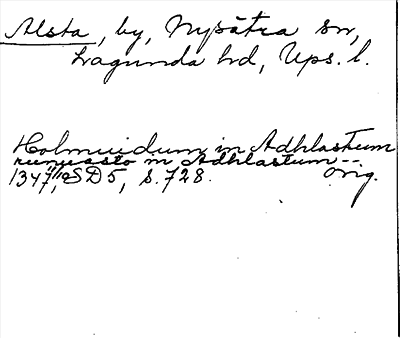 Alsta, by, Nysätra sn,
Lagunda hd, Ups. l.
Holmuidum in Adhlastum
in Adhlastum --
1347 11/10 SD 5, s. 728. Orig.